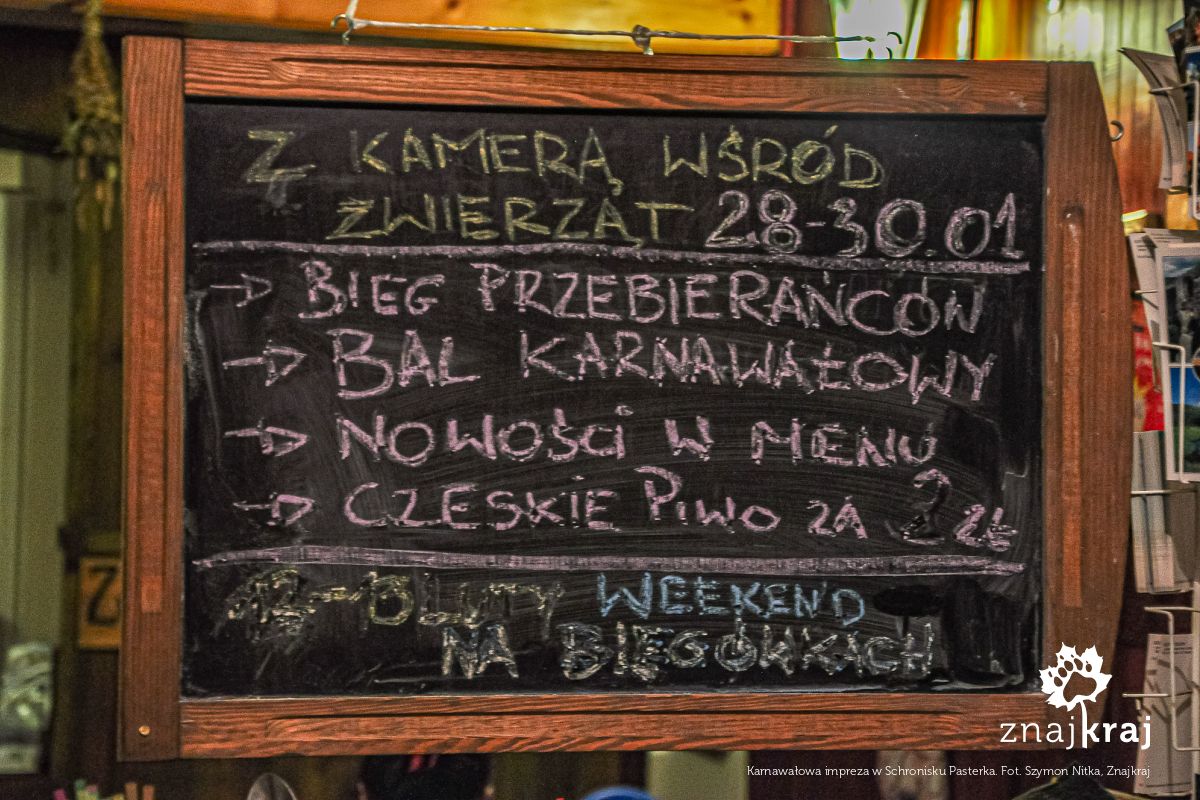 Z KAMERĄ WŚRÓD
ZWIERZĄT 28-30.01
→ BIEG PRZEBIERAŃCÓW
→ BAL KARNAWAŁOWY
→ NOWOŚCI W MENU
→ CZESKIE PIWO ZA 2 ZŁ
LUTY WEEKEND
NA BIEGÓWKACH
znajkraj
Karnawałowa impreza w Schronisku Pasterka. Fot. Szymon Nitka, Znajkraj